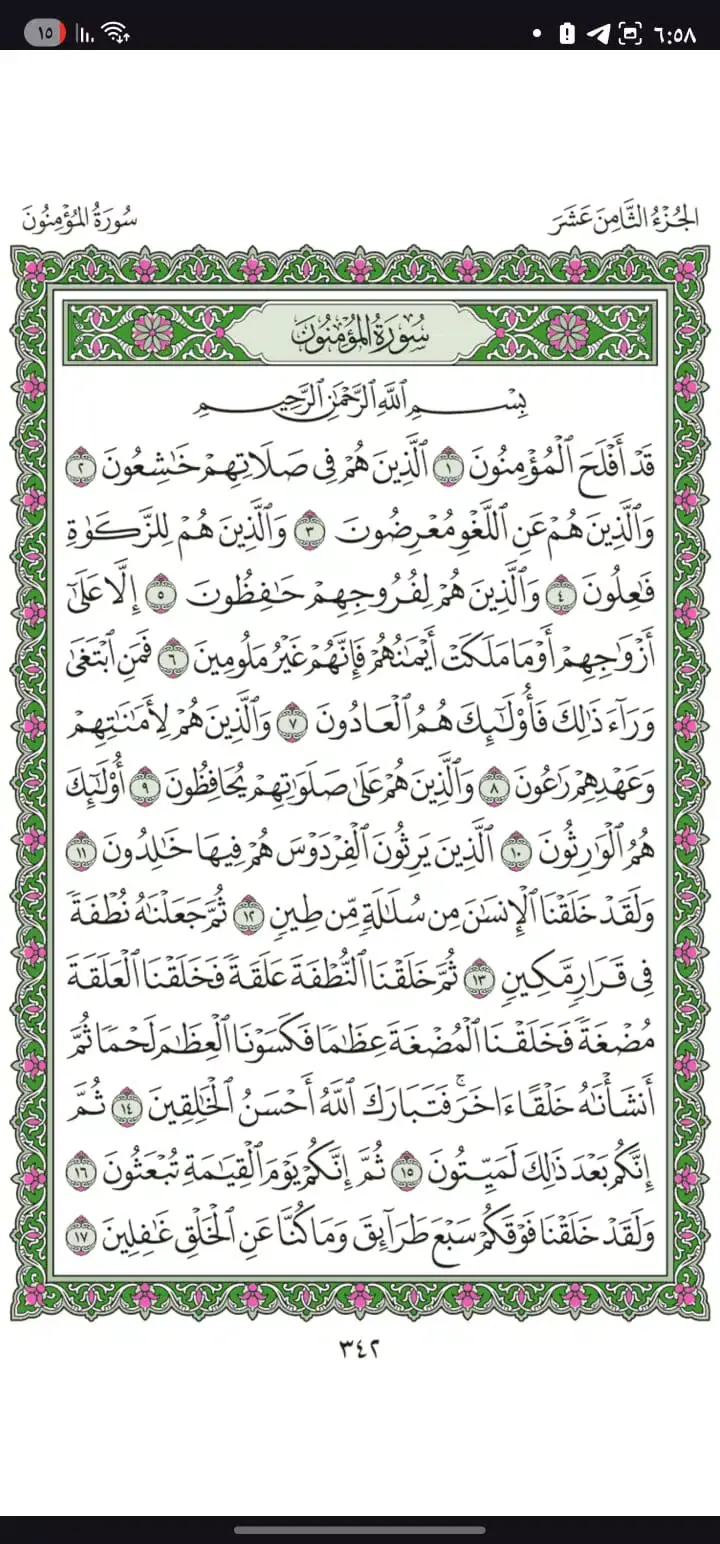 ١٥ ٦:٥٨
الجُزْءُ الثَّامِنَ عَشَرَ سُورَةُ المُؤْمِنُونَ
سُورَةُ المُؤْمِنُونَ
بِسْمِ ٱللَّهِ ٱلرَّحْمَٰنِ ٱلرَّحِيمِ
قَدْ أَفْلَحَ ٱلْمُؤْمِنُونَ ١ ٱلَّذِينَ هُمْ فِى صَلَاتِهِمْ خَٰشِعُونَ ٢
وَٱلَّذِينَ هُمْ عَنِ ٱللَّغْوِ مُعْرِضُونَ ٣ وَٱلَّذِينَ هُمْ لِلزَّكَوٰةِ
فَٰعِلُونَ ٤ وَٱلَّذِينَ هُمْ لِفُرُوجِهِمْ حَٰفِظُونَ ٥ إِلَّا عَلَىٰٓ
أَزْوَٰجِهِمْ أَوْ مَا مَلَكَتْ أَيْمَٰنُهُمْ فَإِنَّهُمْ غَيْرُ مَلُومِينَ ٦ فَمَنِ ٱبْتَغَىٰ
وَرَآءَ ذَٰلِكَ فَأُو۟لَٰٓئِكَ هُمُ ٱلْعَادُونَ ٧ وَٱلَّذِينَ هُمْ لِأَمَٰنَٰتِهِمْ
وَعَهْدِهِمْ رَٰعُونَ ٨ وَٱلَّذِينَ هُمْ عَلَىٰ صَلَوَٰتِهِمْ يُحَافِظُونَ ٩ أُو۟لَٰٓئِكَ
هُمُ ٱلْوَٰرِثُونَ ١٠ ٱلَّذِينَ يَرِثُونَ ٱلْفِرْدَوْسَ هُمْ فِيهَا خَٰلِدُونَ ١١
وَلَقَدْ خَلَقْنَا ٱلْإِنسَٰنَ مِن سُلَٰلَةٍ مِّن طِينٍ ١٢ ثُمَّ جَعَلْنَٰهُ نُطْفَةً
فِى قَرَارٍ مَّكِينٍ ١٣ ثُمَّ خَلَقْنَا ٱلنُّطْفَةَ عَلَقَةً فَخَلَقْنَا ٱلْعَلَقَةَ
مُضْغَةً فَخَلَقْنَا ٱلْمُضْغَةَ عِظَٰمًا فَكَسَوْنَا ٱلْعِظَٰمَ لَحْمًا ثُمَّ
أَنشَأْنَٰهُ خَلْقًا ءَاخَرَ ۚ فَتَبَارَكَ ٱللَّهُ أَحْسَنُ ٱلْخَٰلِقِينَ ١٤ ثُمَّ
إِنَّكُم بَعْدَ ذَٰلِكَ لَمَيِّتُونَ ١٥ ثُمَّ إِنَّكُمْ يَوْمَ ٱلْقِيَٰمَةِ تُبْعَثُونَ ١٦
وَلَقَدْ خَلَقْنَا فَوْقَكُمْ سَبْعَ طَرَآئِقَ وَمَا كُنَّا عَنِ ٱلْخَلْقِ غَٰفِلِينَ ١٧
٣٤٢